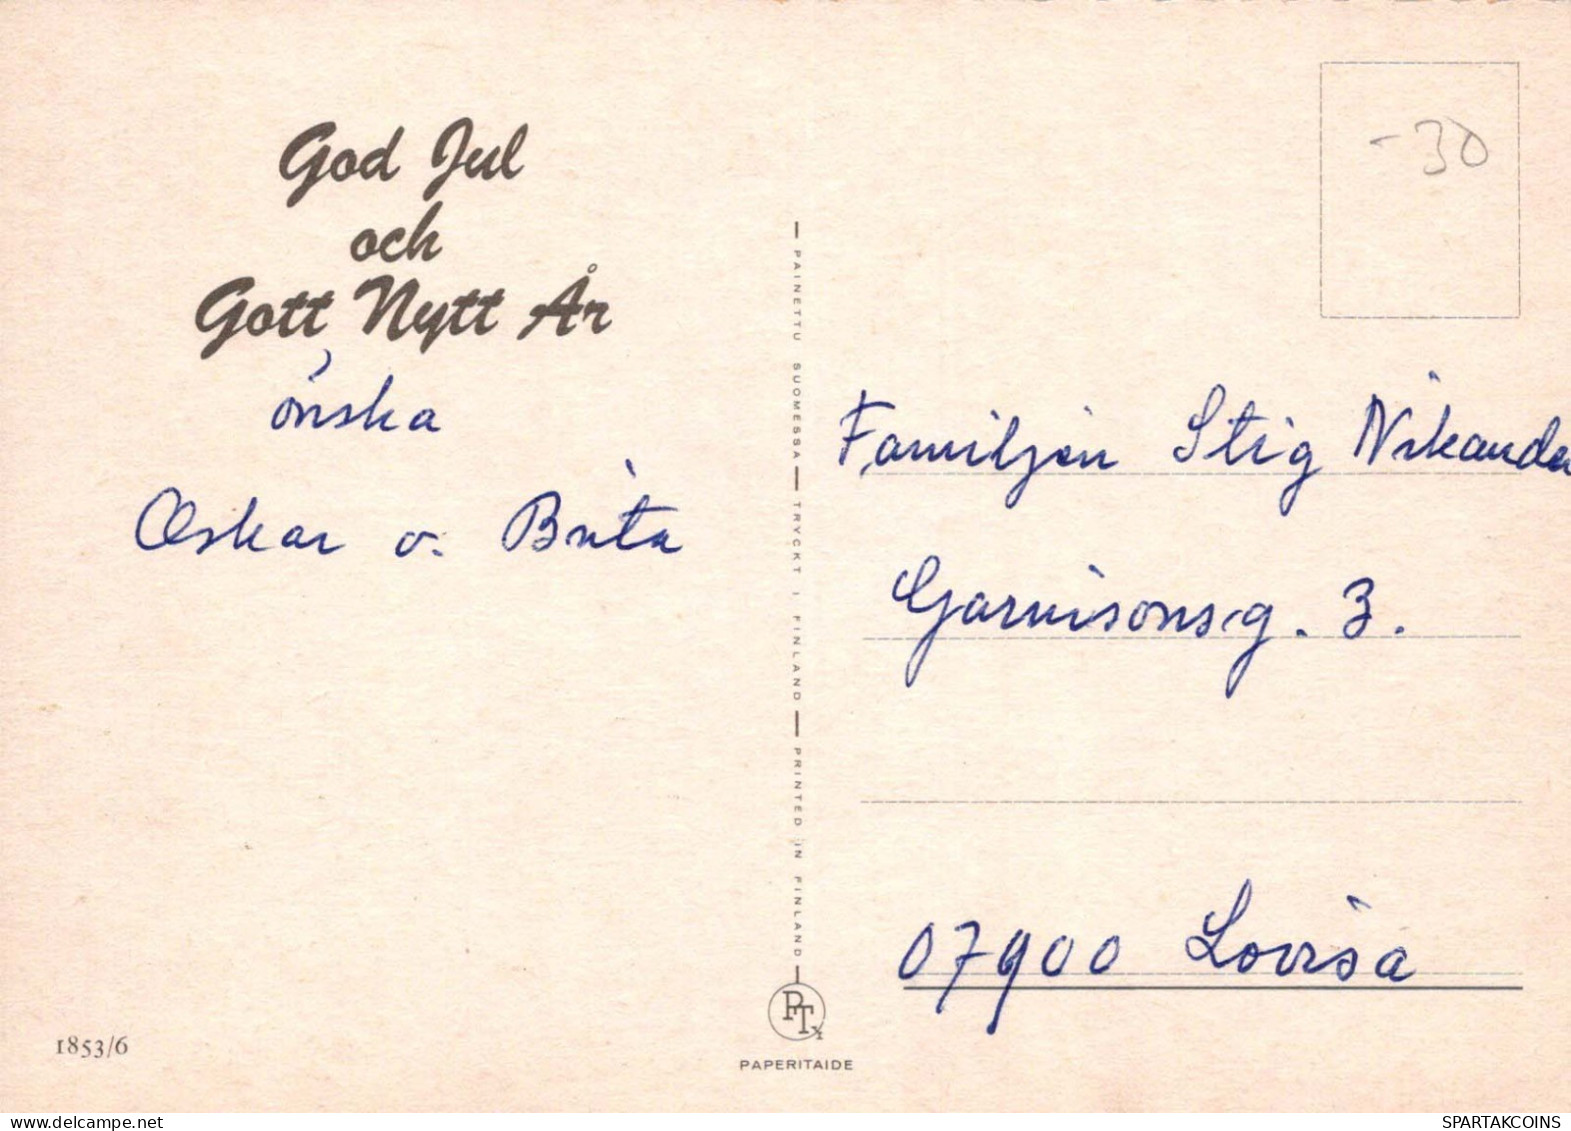 God Jul
och
Gott Nytt År
önska
Oskar o. Brita
-30
PAINETTU SUOMESSA — TRYCKT I FINLAND — PRINTED IN FINLAND
Familjen Stig Nikander
Garnisonsg. 3.
07900 Lovisa
PTy
PAPERITAIDE
1853/6
delcampe.net
SPARTAKCOINS